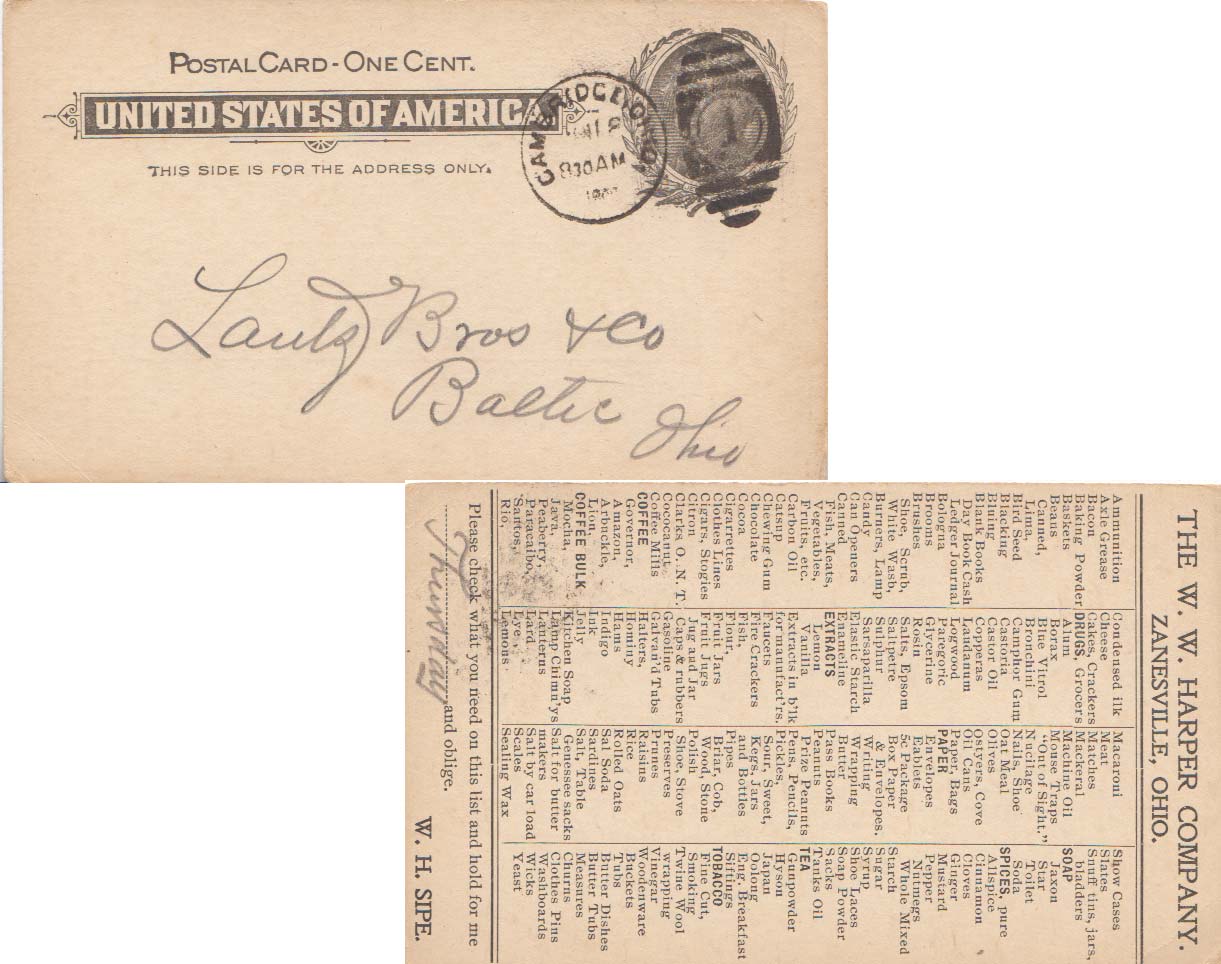 POSTAL CARD - ONE CENT.
UNITED STATES OF AMERICA
THIS SIDE IS FOR THE ADDRESS ONLY.
CAMBRIDGE, OHIO
8 30 AM
1
Lautz Bros & Co
Baltic
Ohio
THE W. W. HARPER COMPANY.
ZANESVILLE, OHIO.
Ammunition
Axle Grease
Bacon
Baking Powder
Baskets
Beans
Canned,
Lima,
Bird Seed
Blacking
Bluing
Blank Books
Day Book Cash
Ledger Journal
Bologna
Brooms
Brushes
Shoe, Scrub,
White Wash,
Burners, Lamp
Candy
Can Openers
Canned
Fish, Meats,
Vegetables,
Fruits, etc.
Carbon Oil
Catsup
Chewing Gum
Chocolate
Cocoa
Cigarrettes
Clothes Lines
Cigars, Stogies
Citron
Clarks, O. N. T.
Cococanut
Coffee Mills
COFFEE
Governor,
Amazon,
Arbuckle,
Lion,
COFFEE BULK
Mocha,
Java,
Peaberry,
Paracaibo,
Santos,
Rio,
Condensed ilk
Cheese
Cakes, Crackers
DRUGS, Grocers
Alum
Borax
Blue Vitrol
Bronchini
Camphor Gum
Castoria
Castor Oil
Copperas
Laudanum
Logwood
Paregoric
Glycerine
Rosin
Salts, Epsom
Saltpetre
Sulphur
Sarsaparilla
Elastic Starch
Enameline
EXTRACTS
Lemon
Vanilla
Extracts in b'lk
for manufact'rs.
Faucets
Fire Crackers
Fish,
Flour,
Fruit Jars
Fruit Jugs
Jug and Jar
Caps & rubbers
Gasoline
Galvan'd Tubs
Halters,
Hominy
Hams
Indigo
Ink
Jelly
Kitchen Soap
Lamp Chimn'ys
Lanterns
Lard
Lye,
Lemons
Macaroni
Meat
Matches
Mackeral
Machine Oil
Mouse Traps
"Out of Sight,"
Nucilage
Nails, Shoe
Oat Meal
Olives
Ostyers, Cove
Oil Cans
Paper, Bags
PAPER
Envelopes
Eablets
5c Package
Box Paper
& Envelopes.
Writing
Wrapping
Butter
Pass Books
Peanuts
Prize Peanuts
Pens, Pencils,
Pickles,
Sour, Sweet,
Kegs, Jars
and Bottles
Pipes
Briar, Cob,
Wood, Stone
Polish
Shoe, Stove
Preserves
Prunes
Raisins
Rice
Rolled Oats
Sal Soda
Sardines
Salt, Table
Genessee sacks
Salt for butter
makers
Salt by car load
Scales
Sealing Wax
Show Cases
Slates
Snuff tins, jars,
bladders
SOAP
Jaxon
Star
Toilet
Soda
SPICES, pure
Allspice
Cinnamon
Cloves
Ginger
Mustard
Pepper
Nutmegs
Whole Mixed
Starch
Sugar
Syrup
Shoe Laces
Soap Powder
Sacks
Tanks Oil
TEA
Gunpowder
Hyson
Japan
Oolong
Eng Breakfast
Siftings
TOBACCO
Fine Cut,
Smoking
Twine Wool
wrapping
Vinegar
Woodenware
Buckets
Tubs
Butter Dishes
Butter Tubs
Measures
Churns
Clothes Pins
Washboards
Wicks
Yeast
Please check what you need on this list and hold for me
Thursday, and oblige.
W. H. SIPE.